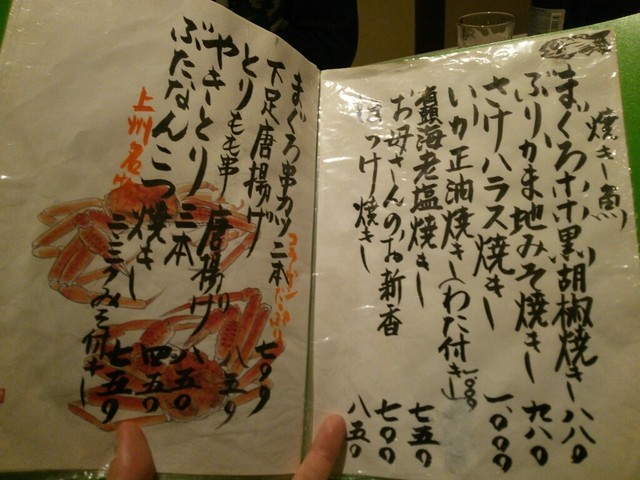 焼き魚
まぐろホホ黒胡椒焼き 八八〇
ぶりかま地みそ焼き 九八〇
さけハラス焼き 一、〇〇〇
いか正油焼き(わた付き) 一、〇〇〇
有頭海老塩焼き 七五〇
お母さんのお新香 七〇〇
ほっけ焼き 八五〇
まぐろ串カツ 二本 七〇〇
下足唐揚げ
コラーゲンたっぷり
とりもも串 唐揚げ 八五〇
やきとり 三本 八五〇
ぶたなんこつ焼き 四五〇
上州名物
ニラみそ付き 七五〇